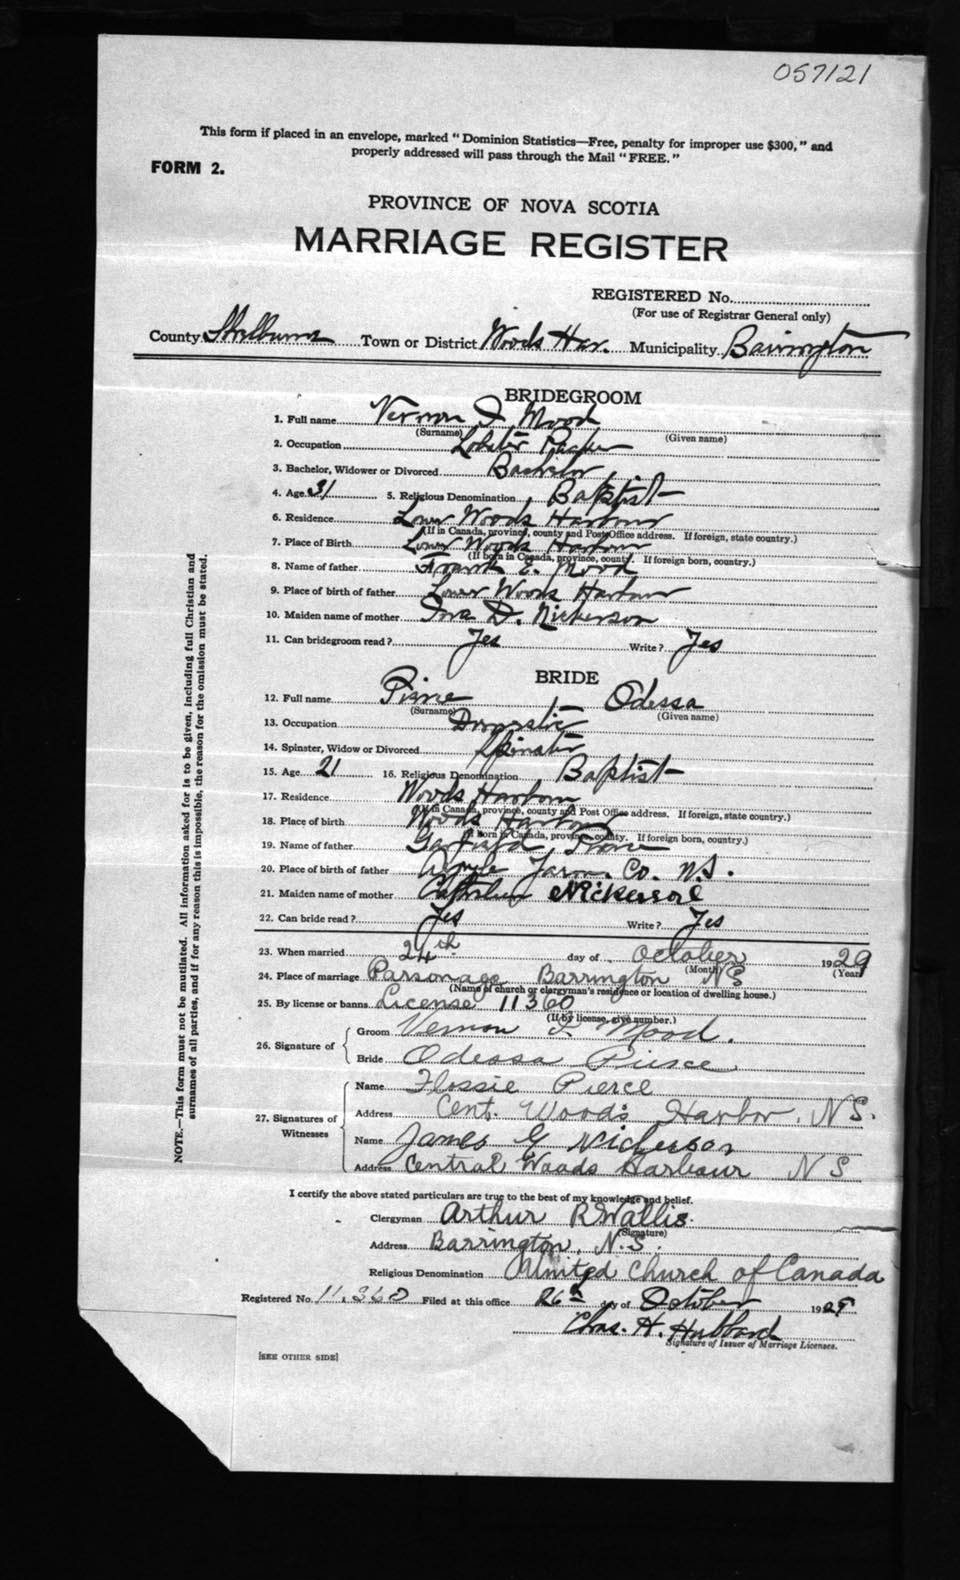 057121
This form if placed in an envelope, marked "Dominion Statistics—Free, penalty for improper use $300," and
properly addressed will pass through the Mail "FREE."
FORM 2.
PROVINCE OF NOVA SCOTIA
MARRIAGE REGISTER
REGISTERED No.
(For use of Registrar General only)
County Shelburne Town or District Woods Har. Municipality Barrington
BRIDEGROOM
1. Full name Vernon F Mood
(Surname) (Given name)
2. Occupation Lobster Packer
3. Bachelor, Widower or Divorced Bachelor
4. Age 31 5. Religious Denomination Baptist
6. Residence Lower Woods Harbour
(If in Canada, province, county and Post Office address. If foreign, state country.)
7. Place of Birth Lower Woods Harbour
(If born in Canada, province, county. If foreign born, country.)
8. Name of father Frank E. Mood
9. Place of birth of father Lower Woods Harbour
10. Maiden name of mother Ina D. Nickerson
11. Can bridegroom read? Yes Write? Yes
BRIDE
12. Full name Pierce Odessa
(Surname) (Given name)
13. Occupation Domestic
14. Spinster, Widow or Divorced Spinster
15. Age 21 16. Religious Denomination Baptist
17. Residence Woods Harbour
(If in Canada, province, county and Post Office address. If foreign, state country.)
18. Place of birth Woods Harbour
(If born in Canada, province, county. If foreign born, country.)
19. Name of father Garfield Pierce
20. Place of birth of father Argyle Yarm. Co. N.S.
21. Maiden name of mother Nickerson
22. Can bride read? Yes Write? Yes
23. When married 24th day of October 1929
(Month) (Year)
24. Place of marriage Parsonage Barrington NS
(Name of church or clergyman's residence or location of dwelling house.)
25. By license or banns License 11360
(If by license, give number.)
26. Signature of Groom Vernon F Mood.
Bride Odessa Pierce
27. Signatures of Witnesses Name Flossie Pierce
Address Cent. Woods Harbor, NS.
Name James G Nickerson
Address Central Woods Harbour NS
I certify the above stated particulars are true to the best of my knowledge and belief.
Clergyman Arthur R Wallis.
(Signature)
Address Barrington, N.S.
Religious Denomination United Church of Canada
Registered No. 11,360 Filed at this office 26th day of October 1929
Chas. H. Hubbard
Signature of Issuer of Marriage Licenses.
[SEE OTHER SIDE]
NOTE.—This form must not be mutilated. All information asked for is to be given, including full Christian and
surnames of all parties, and if for any reason this is impossible, the reason for the omission must be stated.